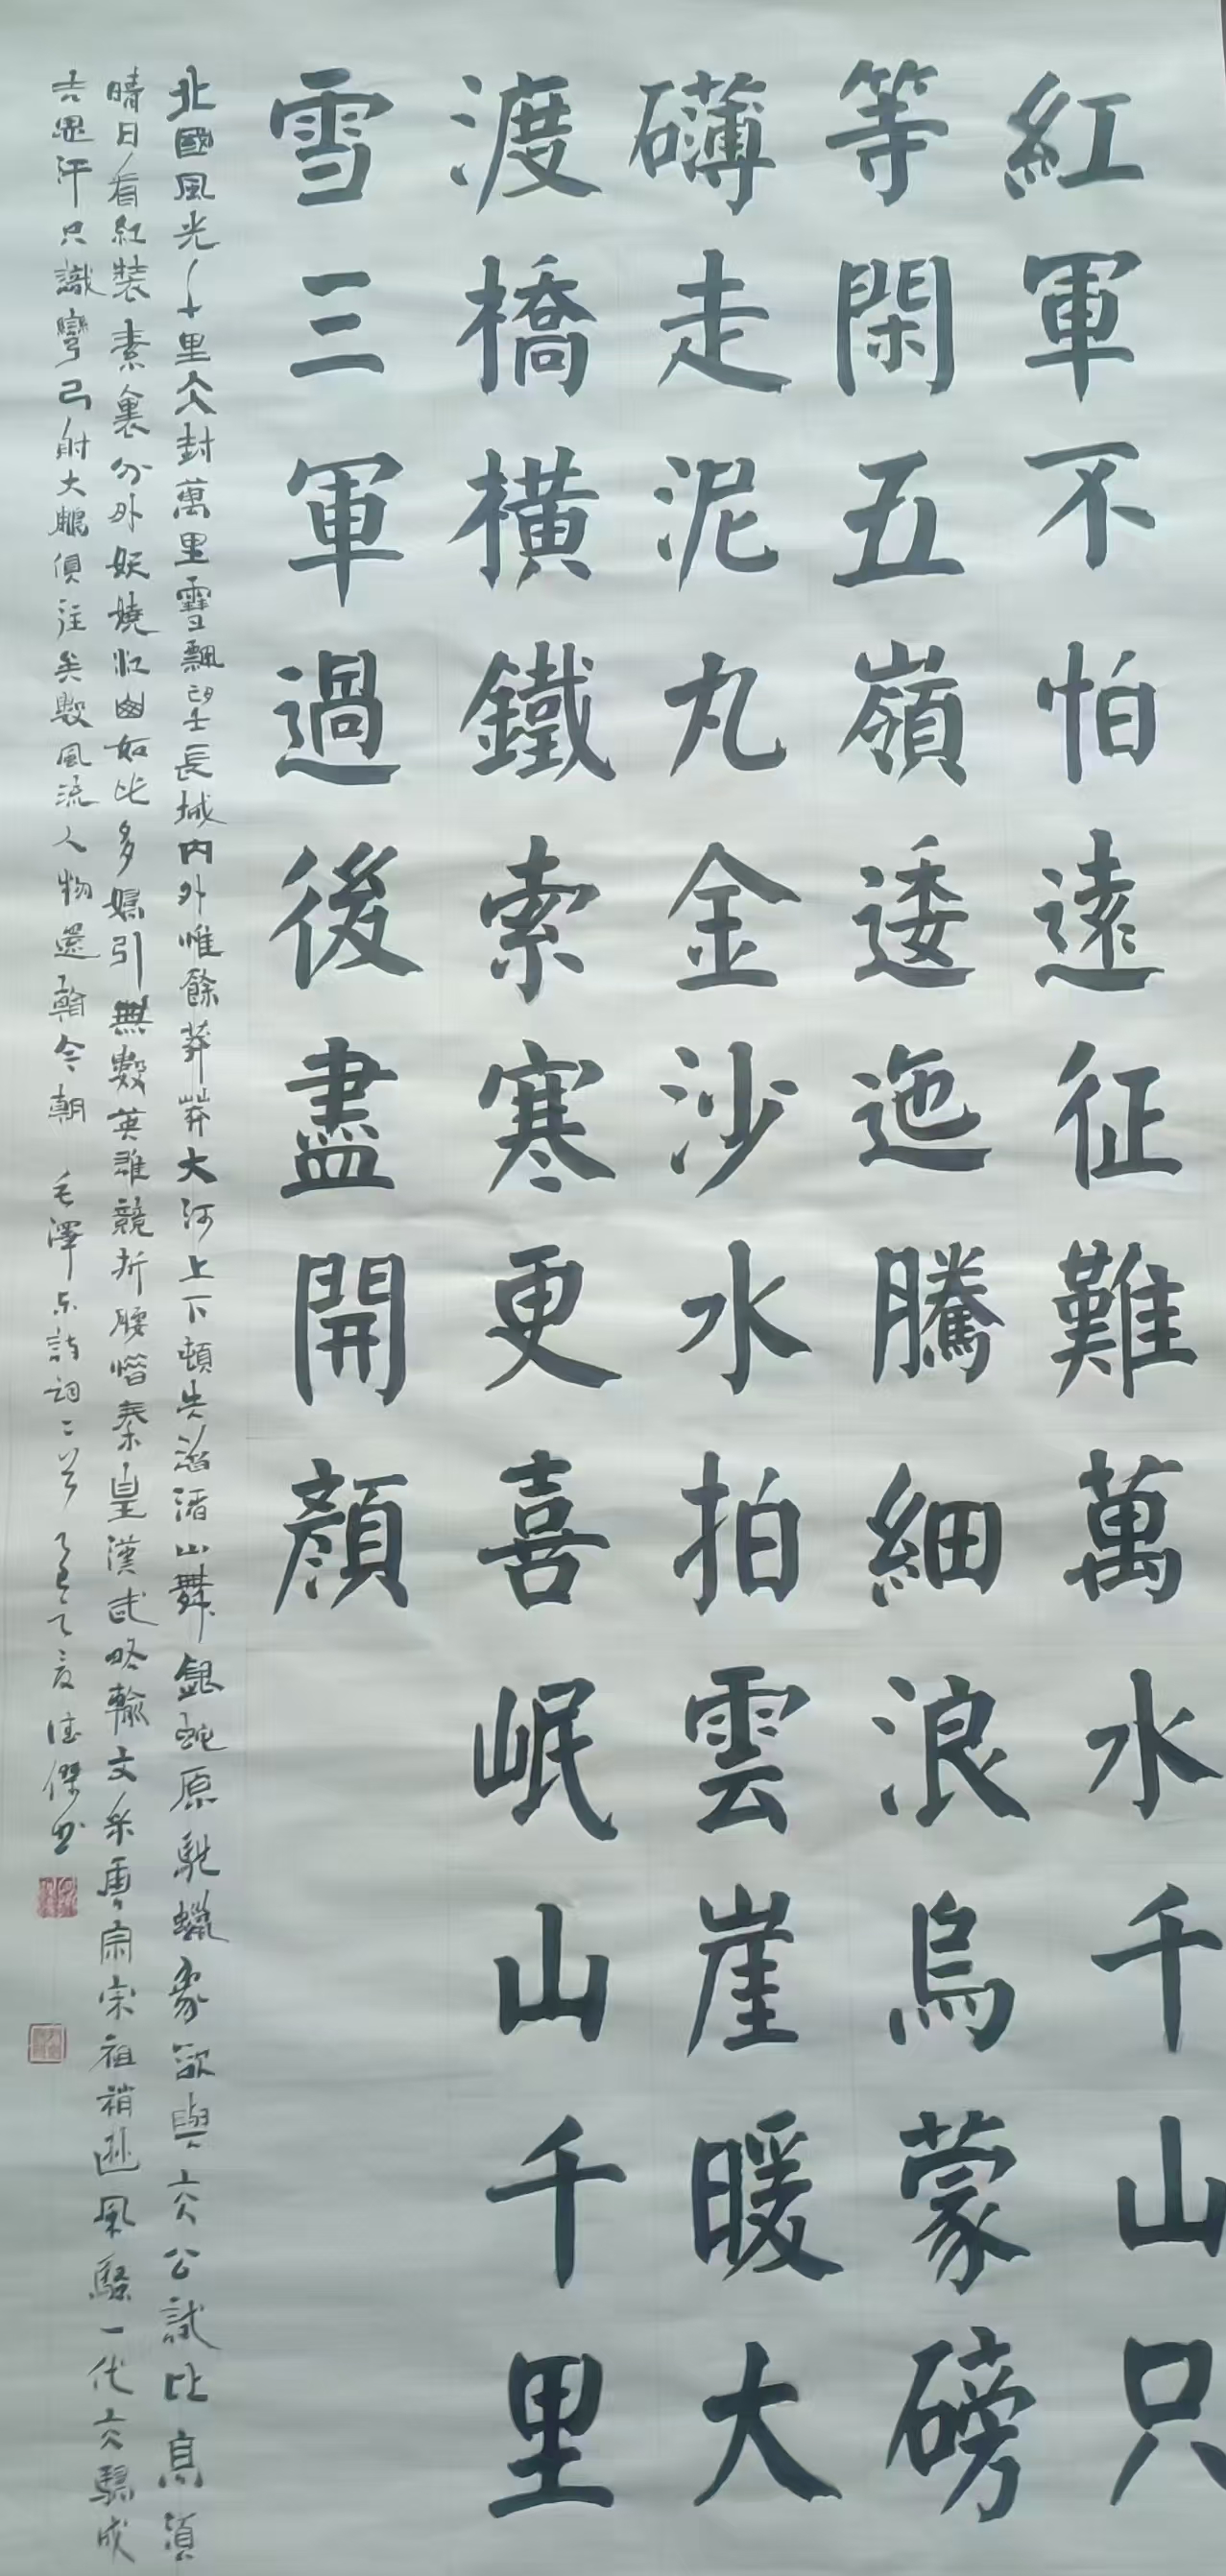 紅軍不怕遠征難萬水千山只
等閑五嶺逶迤騰細浪烏蒙磅
礴走泥丸金沙水拍雲崖暖大
渡橋橫鐵索寒更喜岷山千里
雪三軍過後盡開顏
北國風光千里冰封萬里雪飄望長城內外惟餘莽莽大河上下頓失滔滔山舞銀蛇原馳蠟象欲與天公試比高須
晴日看紅裝素裹分外妖嬈江山如此多嬌引無數英雄競折腰惜秦皇漢武略輸文采唐宗宋祖稍遜風騷一代天驕成
吉思汗只識彎弓射大鵰俱往矣數風流人物還看今朝 毛澤东詩詞二首 德傑书